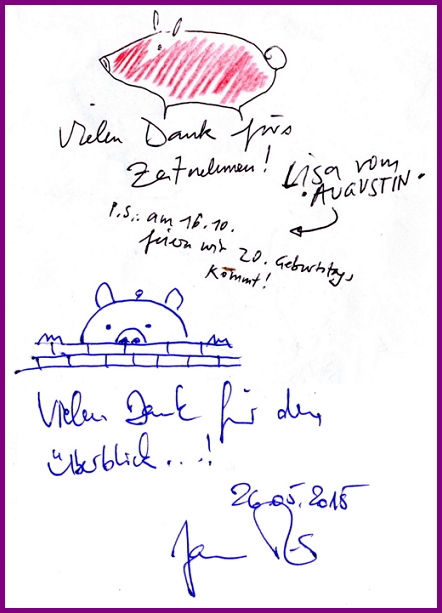 Vielen Dank fürs
Zeitnehmen!
Lisa vom
AUGUSTIN.
P.S.: am 16.10.
feiern wir 20. Geburtstag,
kommt!
Vielen Dank für den
Überblick...!
26.05.2015